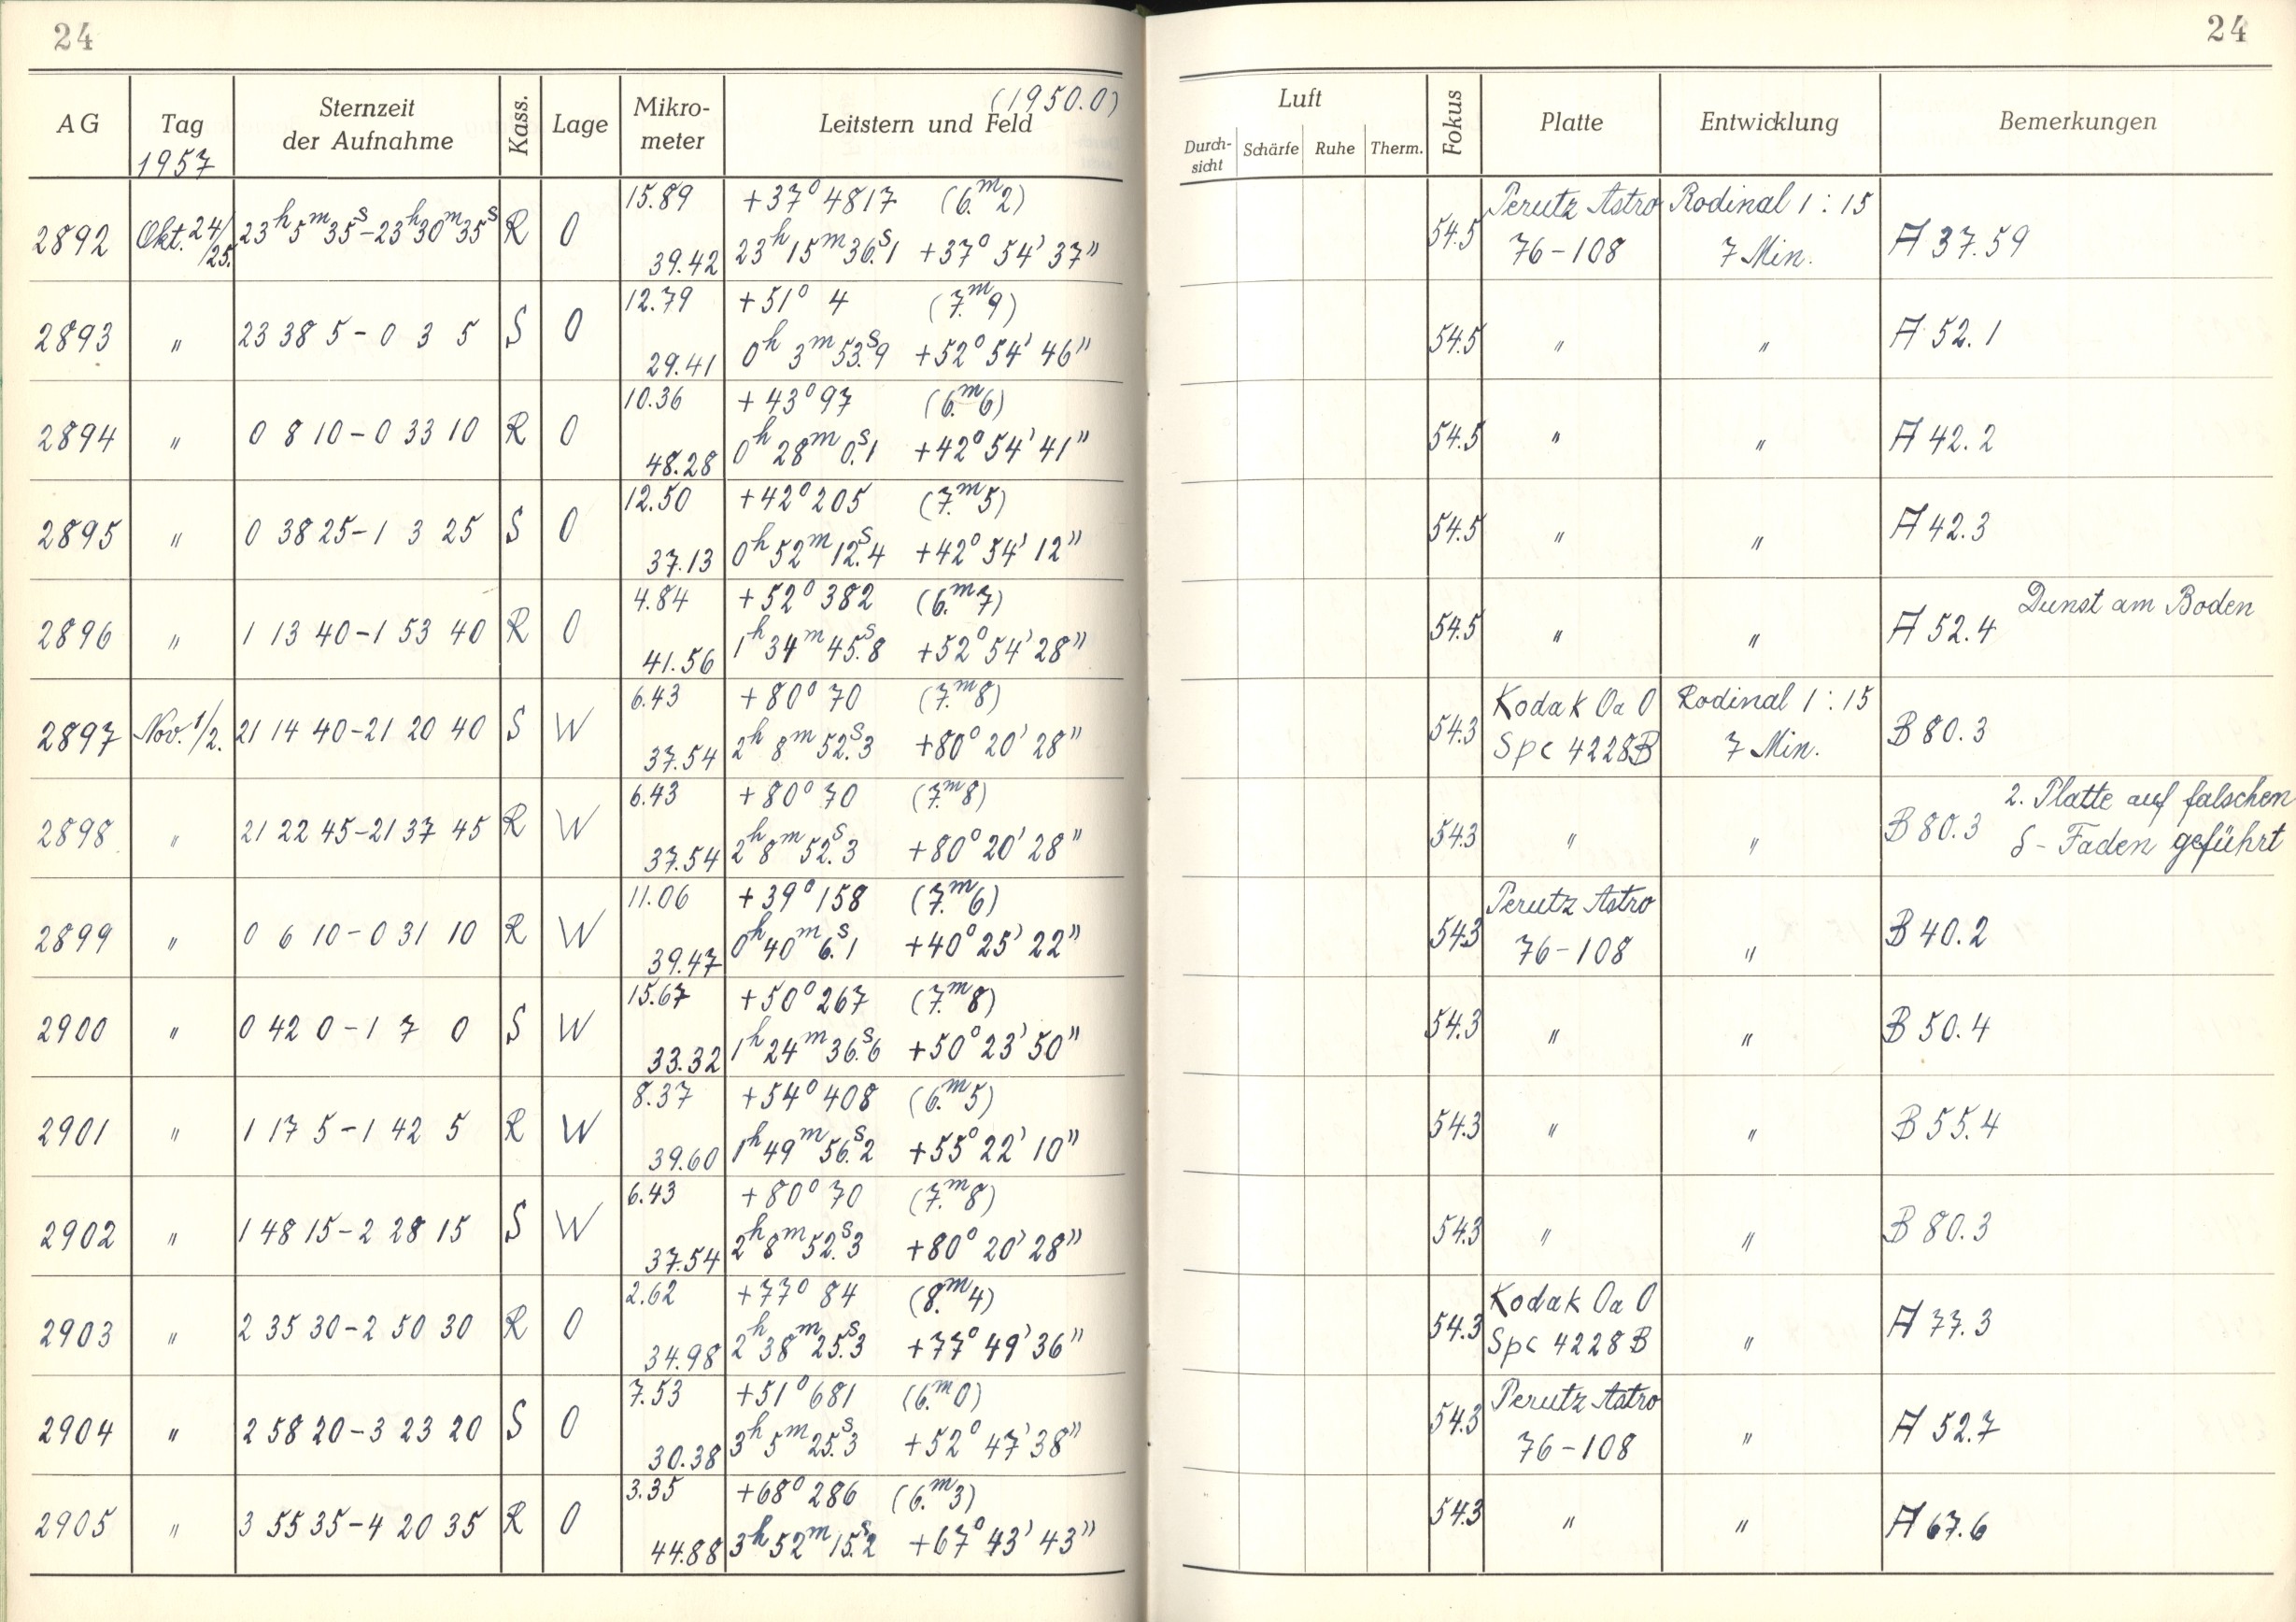 24
24
AG
Tag
1957
Sternzeit
der Aufnahme
Kass.
Lage
Mikro-
meter
(1950.0)
Leitstern und Feld
Luft
Durch-
sicht
Schärfe
Ruhe
Therm.
Fokus
Platte
Entwicklung
Bemerkungen
15.89 +37° 4817 (6.ᵐ2) Perutz Astro Rodinal 1:15
2892 Okt. 24/25. 23ʰ5ᵐ35ˢ-23ʰ30ᵐ35ˢ R O 54.5 A 37.59
39.42 23ʰ 15ᵐ 36.ˢ1 +37° 54' 37" 76-108 7 Min.
12.79 +51° 4 (7.ᵐ9)
2893 " 23 38 5-0 3 5 S O 54.5 " " A 52.1
29.41 0ʰ 3ᵐ 53.ˢ9 +52° 54' 46"
10.36 +43° 97 (6.ᵐ6)
2894 " 0 8 10-0 33 10 R O 54.5 " " A 42.2
48.28 0ʰ 28ᵐ 0.ˢ1 +42° 54' 41"
12.50 +42° 205 (7.ᵐ5)
2895 " 0 38 25-1 3 25 S O 54.5 " " A 42.3
37.13 0ʰ 52ᵐ 12.ˢ4 +42° 54' 12"
4.84 +52° 382 (6.ᵐ7) Dunst am Boden
2896 " 1 13 40-1 53 40 R O 54.5 " " A 52.4
41.56 1ʰ 34ᵐ 45.ˢ8 +52° 54' 28"
6.43 +80° 70 (7.ᵐ8) Kodak Oa O Rodinal 1:15
2897 Nov. 1/2. 21 14 40-21 20 40 S W 54.3 B 80.3
37.54 2ʰ 8ᵐ 52.ˢ3 +80° 20' 28" Spc 4228B 7 Min.
6.43 +80° 70 (7.ᵐ8) 2. Platte auf falschen
2898 " 21 22 45-21 37 45 R W 54.3 " " B 80.3 δ-Faden geführt
37.54 2ʰ 8ᵐ 52.ˢ3 +80° 20' 28"
11.06 +39° 158 (7.ᵐ6) Perutz Astro
2899 " 0 6 10-0 31 10 R W 54.3 " B 40.2
39.47 0ʰ 40ᵐ 6.ˢ1 +40° 25' 22" 76-108
15.67 +50° 267 (7.ᵐ8)
2900 " 0 42 0-1 7 0 S W 54.3 " " B 50.4
33.32 1ʰ 24ᵐ 36.ˢ6 +50° 23' 50"
8.37 +54° 408 (6.ᵐ5)
2901 " 1 17 5-1 42 5 R W 54.3 " " B 55.4
39.60 1ʰ 49ᵐ 56.ˢ2 +55° 22' 10"
6.43 +80° 70 (7.ᵐ8)
2902 " 1 48 15-2 28 15 S W 54.3 " " B 80.3
37.54 2ʰ 8ᵐ 52.ˢ3 +80° 20' 28"
2.62 +77° 84 (8.ᵐ4) Kodak Oa O
2903 " 2 35 30-2 50 30 R O 54.3 " A 77.3
34.98 2ʰ 38ᵐ 25.ˢ3 +77° 49' 36" Spc 4228B
7.53 +51° 681 (6.ᵐ0) Perutz Astro
2904 " 2 58 20-3 23 20 S O 54.3 " A 52.7
30.38 3ʰ 5ᵐ 25.ˢ3 +52° 47' 38" 76-108
3.35 +68° 286 (6.ᵐ3)
2905 " 3 55 35-4 20 35 R O 54.3 " " A 67.6
44.88 3ʰ 52ᵐ 15.ˢ2 +67° 43' 43"